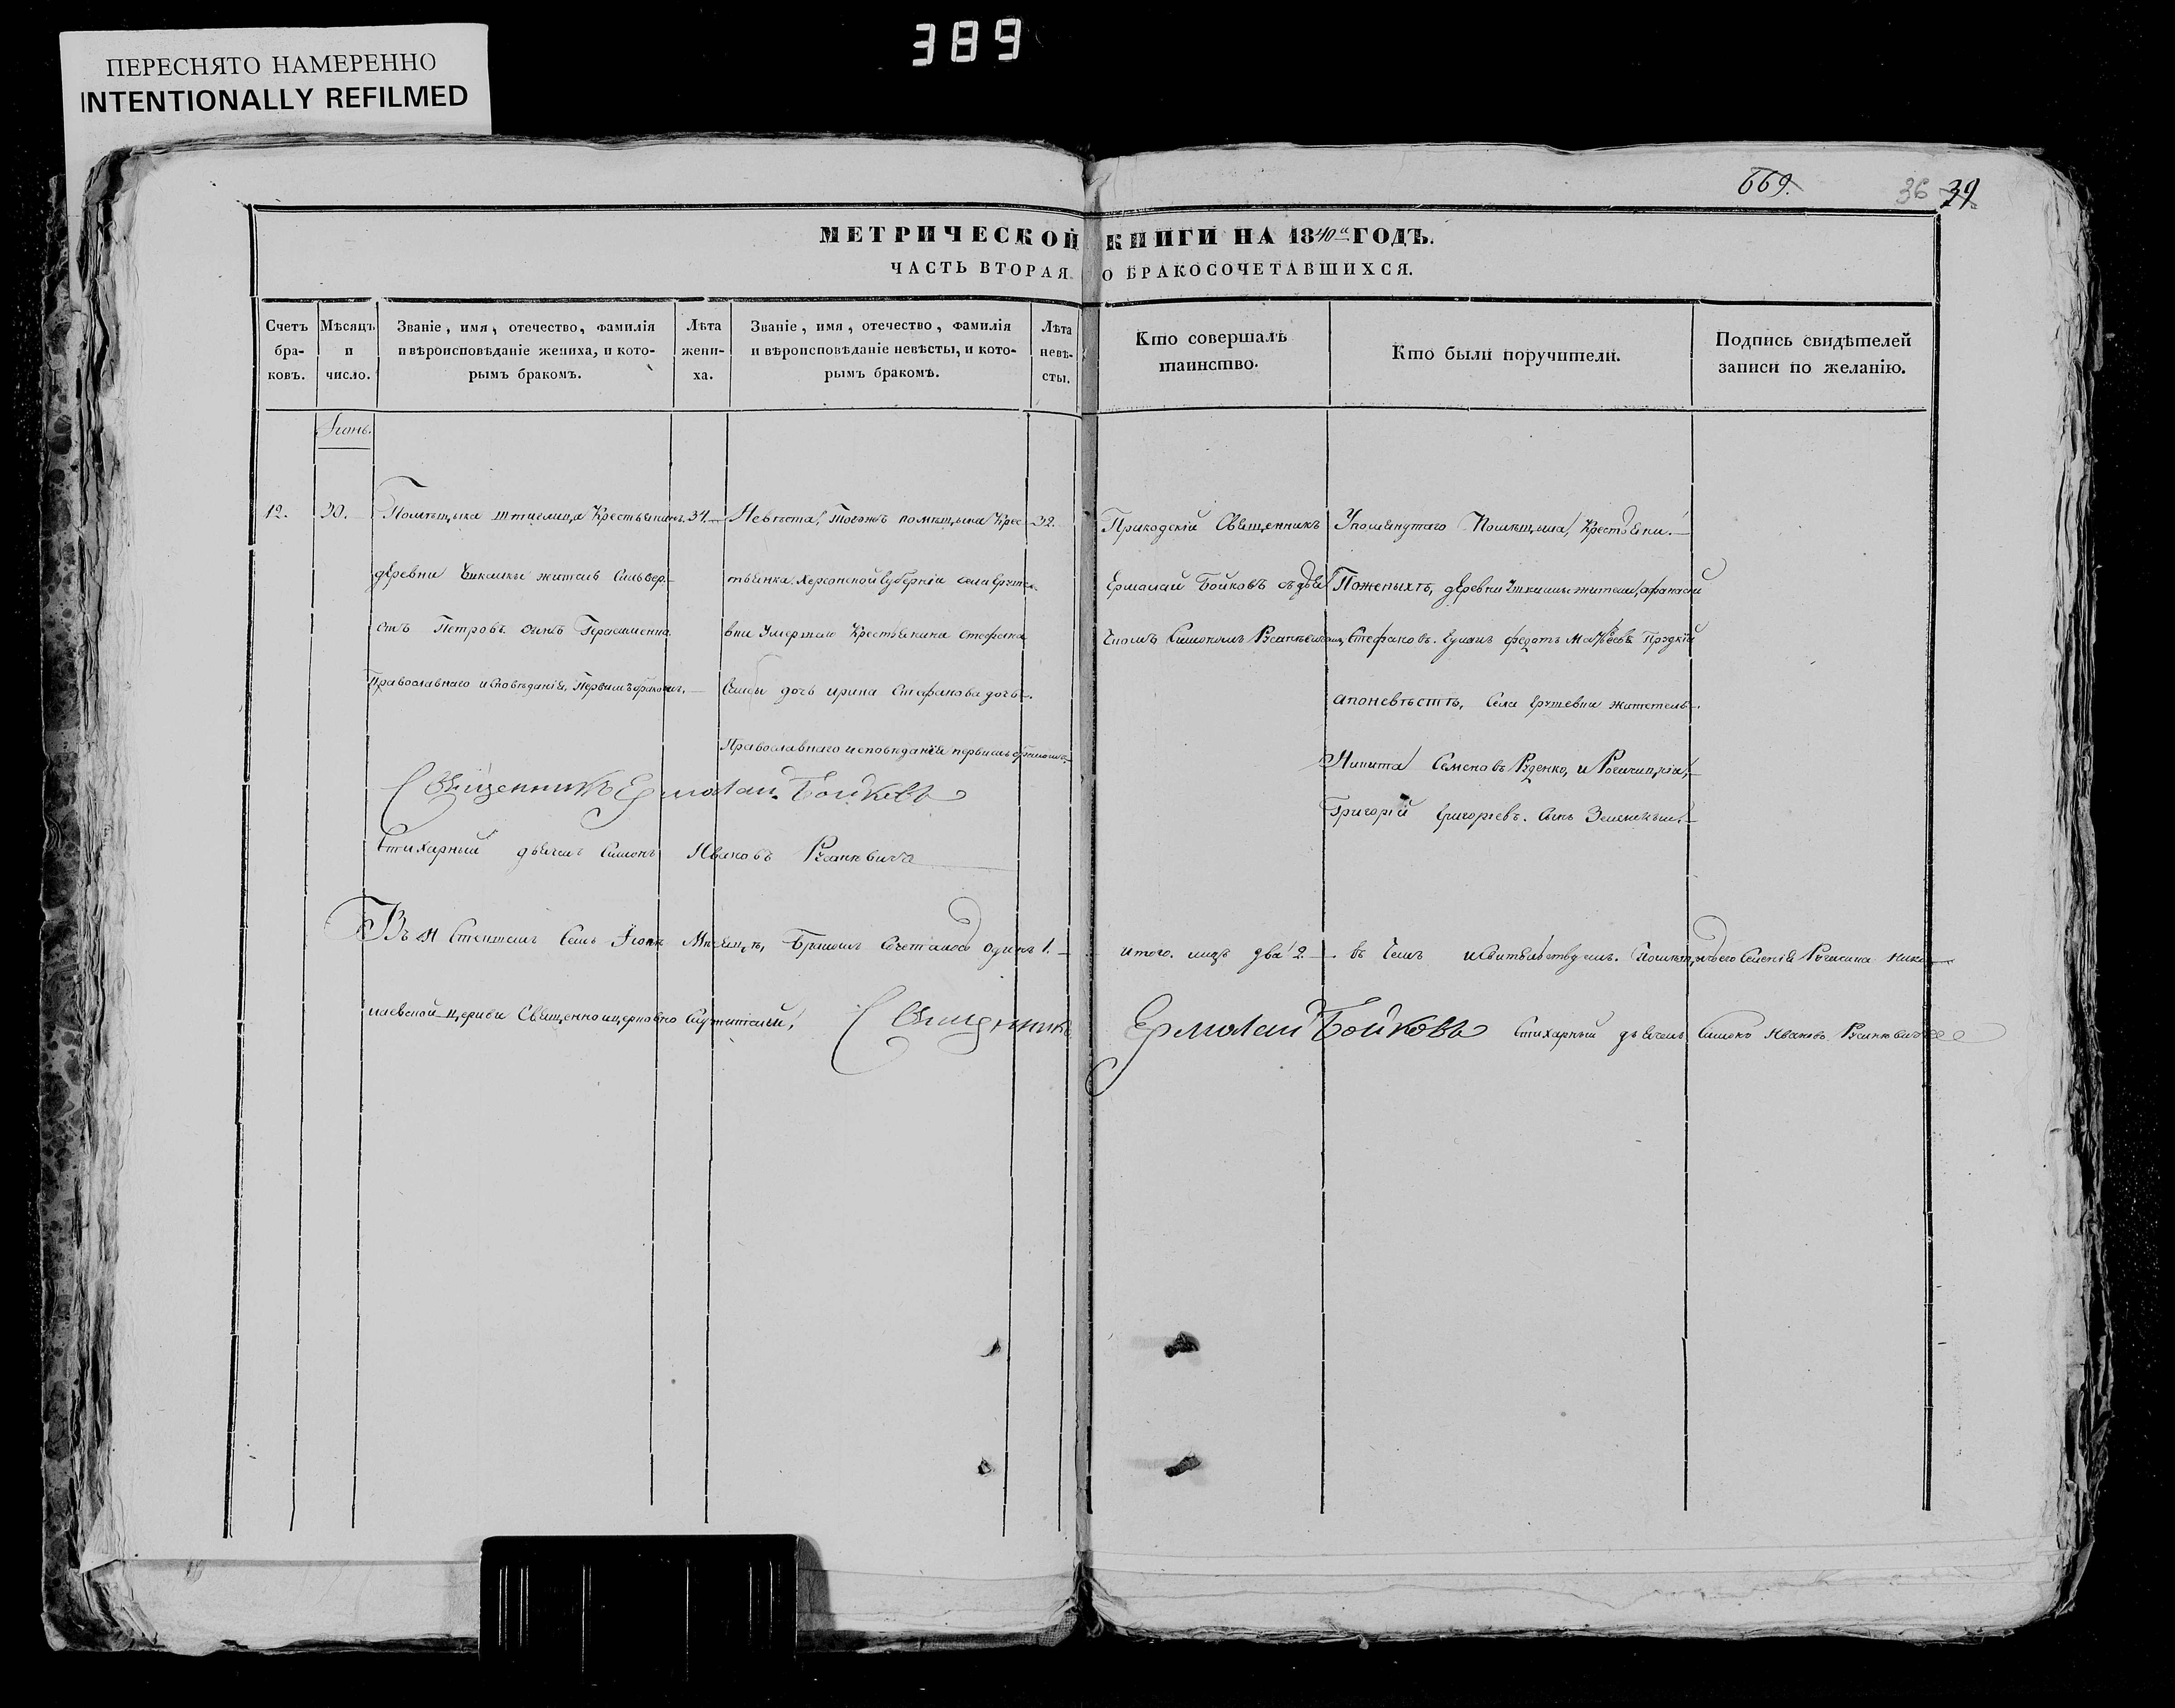 389
ПЕРЕСНЯТО НАМЕРЕННО
INTENTIONALLY REFILMED
669.
36 39
МЕТРИЧЕСКОЙ КНИГИ НА 1840й ГОДЪ.
ЧАСТЬ ВТОРАЯ О БРАКОСОЧЕТАВШИХСЯ.
Счетъ
бра-
ковъ.
Мѣсяцъ
и
число.
Званіе, имя, отечество, фамилія
и вѣроисповѣданіе жениха, и кото-
рымъ бракомъ.
Лѣта
жени-
ха.
Званіе, имя, отечество, фамилія
и вѣроисповѣданіе невѣсты, и кото-
рымъ бракомъ.
Лѣта
невѣ-
сты.
Кто совершалъ
таинство.
Кто были поручители.
Подпись свидѣтелей
записи по желанію.
Іюнь.
12.
30.
Помѣщыка Крестьянинъ
деревни житель Сильвер-
стъ Петровъ сынъ Герасименко
Православнаго исповѣданія, Первымъ бракомъ.
34.
Невѣста, Тогожъ помѣщыка Крес-
тьянка Херсонской Губерніи села
вки Умершаго Крестьянина Стефана
дочь ирина Стефанова дочь.
Православнаго исповѣданія первымъ бракомъ
32.
Приходскій Священникъ
Ермолай Бойковъ съ дья
чкомъ Симономъ
Упомянутаго Помѣщыка, Крестьяни.
Поженыхѣ, деревни жители, афанасій
Стефановъ. федотъ Матвѣевъ
апоневѣстѣ, Села житетель
Никита Семеновъ Руденко, и
Григорій Григоріевъ. сынъ
Священникъ Ермолай Бойковъ
Стихарный дьячекъ Симонъ Ивановъ
Въ семъ Іюнѣ Мѣсяцѣ, Бракомъ Сочеталось одинъ 1. итого. лицъ два 2. въ чемъ исвитѣльствуемъ.
лаевской церкви Священноицерковно Служители, Священникъ Ермолай Бойковъ Стихарный дьячекъ Симонъ Ивановъ